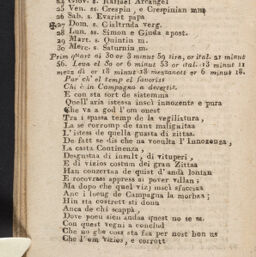 24 Giov. s. Rafael Arcangel
25 Ven. ss. Crespin, e Crespinian mm
26 Sab. s. Evarist papa
27 Dom. s. Gieltruda verg.
28 Lun. ss. Simon e Giuda apost.
29 Mart. s. Quintin m.
30 Merc. s. Saturnin m.
Prim quart ai 30 or 3 minut 59 tira, or ital. 21 minut
56. Leva el So or 6 minut 53 or ital. 13 minut 11
mezz di or 18 minut 18 mezzanott or 6 minut 18.
Par ch' el temp el favoris
Chi è in Campagna a devertis.
E con sta sort de sistemma
Quell' aris istessa inscì innocente e pura
Che va a god l'om onest
Tra i spassa temp de la vegiliatura,
La se corromp de tant malignitaa
L' istess de quella guasta di zittaa.
De fatt se dis che na vooulta l' innocenza
La casta Continenza,
Desgustaa di insult, di vituperi,
E di vizios costum dei gran Zittaa
Han concertaa de quist d' andà lontan
E recovrass appress ai pover villan;
Ma dopo che quel viz
Anc i loeug de Campagna la morbaa;
Hin sta costrett sti donn
Anca de chì scappà,
Dove poeu sieu andaa quest no se sa.
Con quest vegni a conclud
Che no ghe cosa sta faa per nost bon us
Che l'om vizios, e corrott